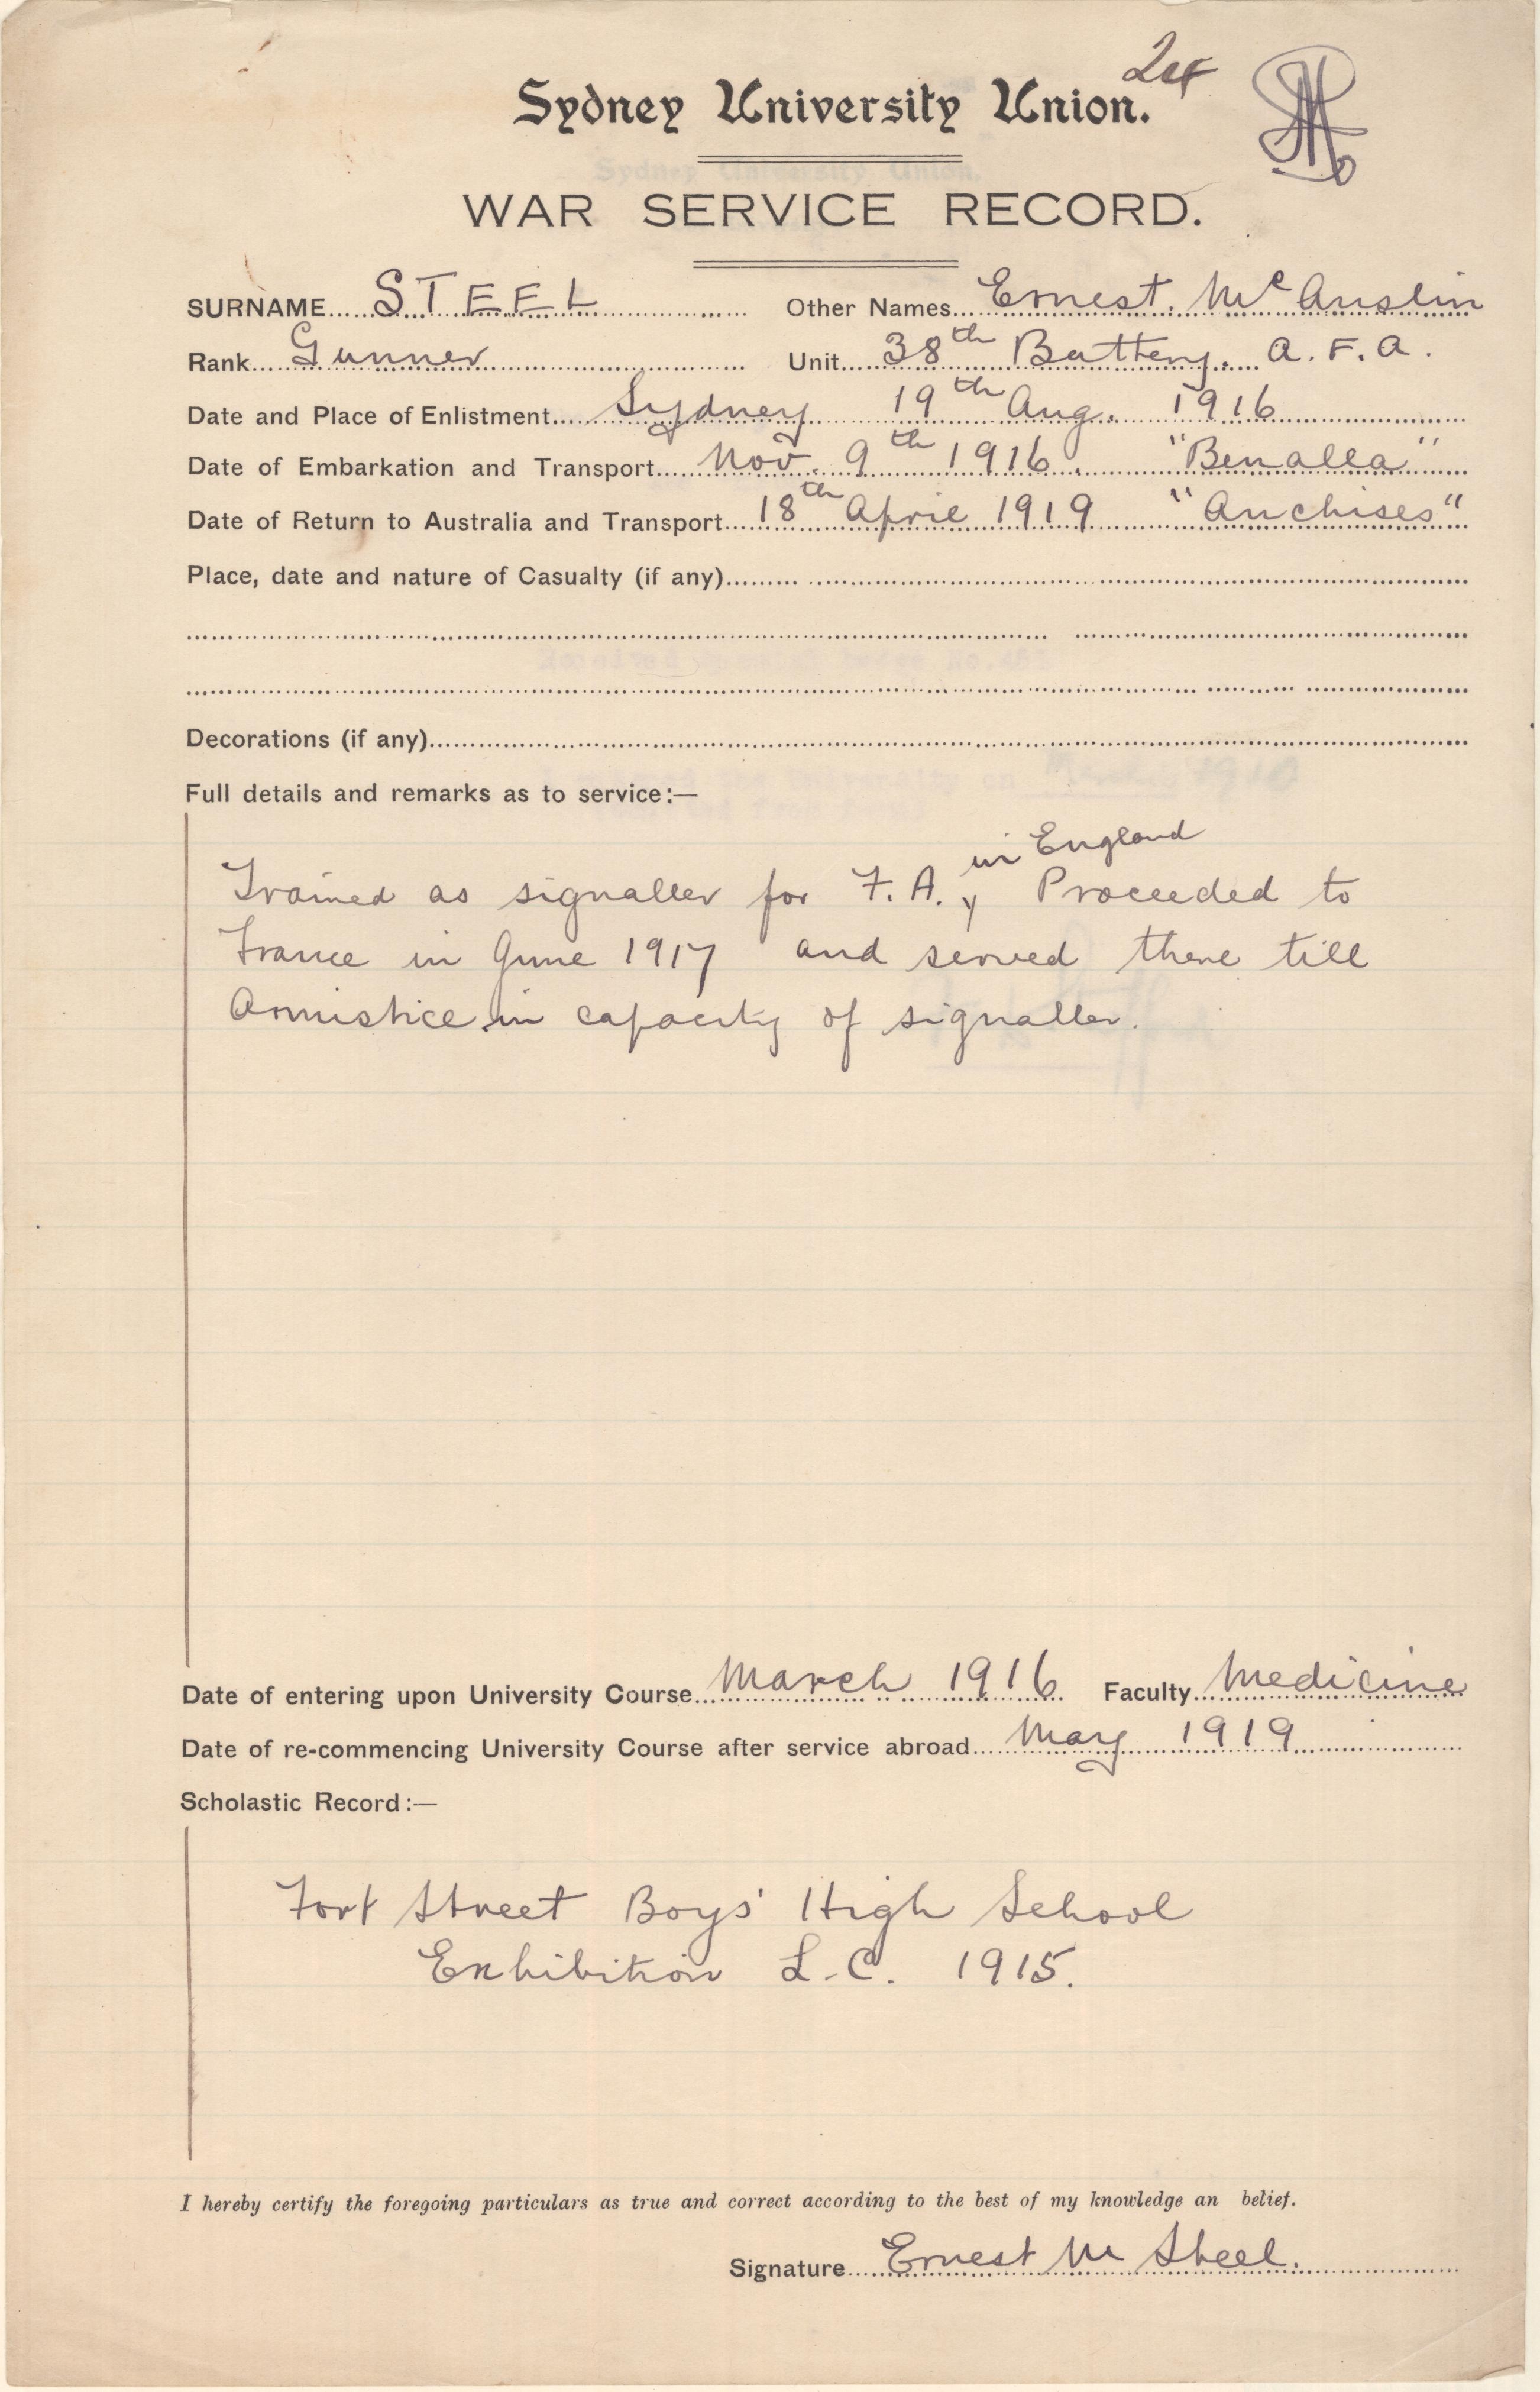 24
Sydney University Union.
WAR SERVICE RECORD.
SURNAME STEEL Other Names Ernest. McAuslin
Rank Gunner Unit 38th Battery. A.F.A.
Date and Place of Enlistment Sydney 19th Aug. 1916
Date of Embarkation and Transport Nov. 9th 1916. "Benalla"
Date of Return to Australia and Transport 18th April 1919 "Anchises"
Place, date and nature of Casualty (if any)
Decorations (if any)
Full details and remarks as to service:—
in England
Trained as signaller for F.A. Proceeded to
France in June 1917 and served there till
Armistice in capacity of signaller.
Date of entering upon University Course March 1916 Faculty Medicine
Date of re-commencing University Course after service abroad May 1919
Scholastic Record:—
Fort Street Boys' High School
Exhibition L.C. 1915.
I hereby certify the foregoing particulars as true and correct according to the best of my knowledge an belief.
Signature Ernest M Steel.